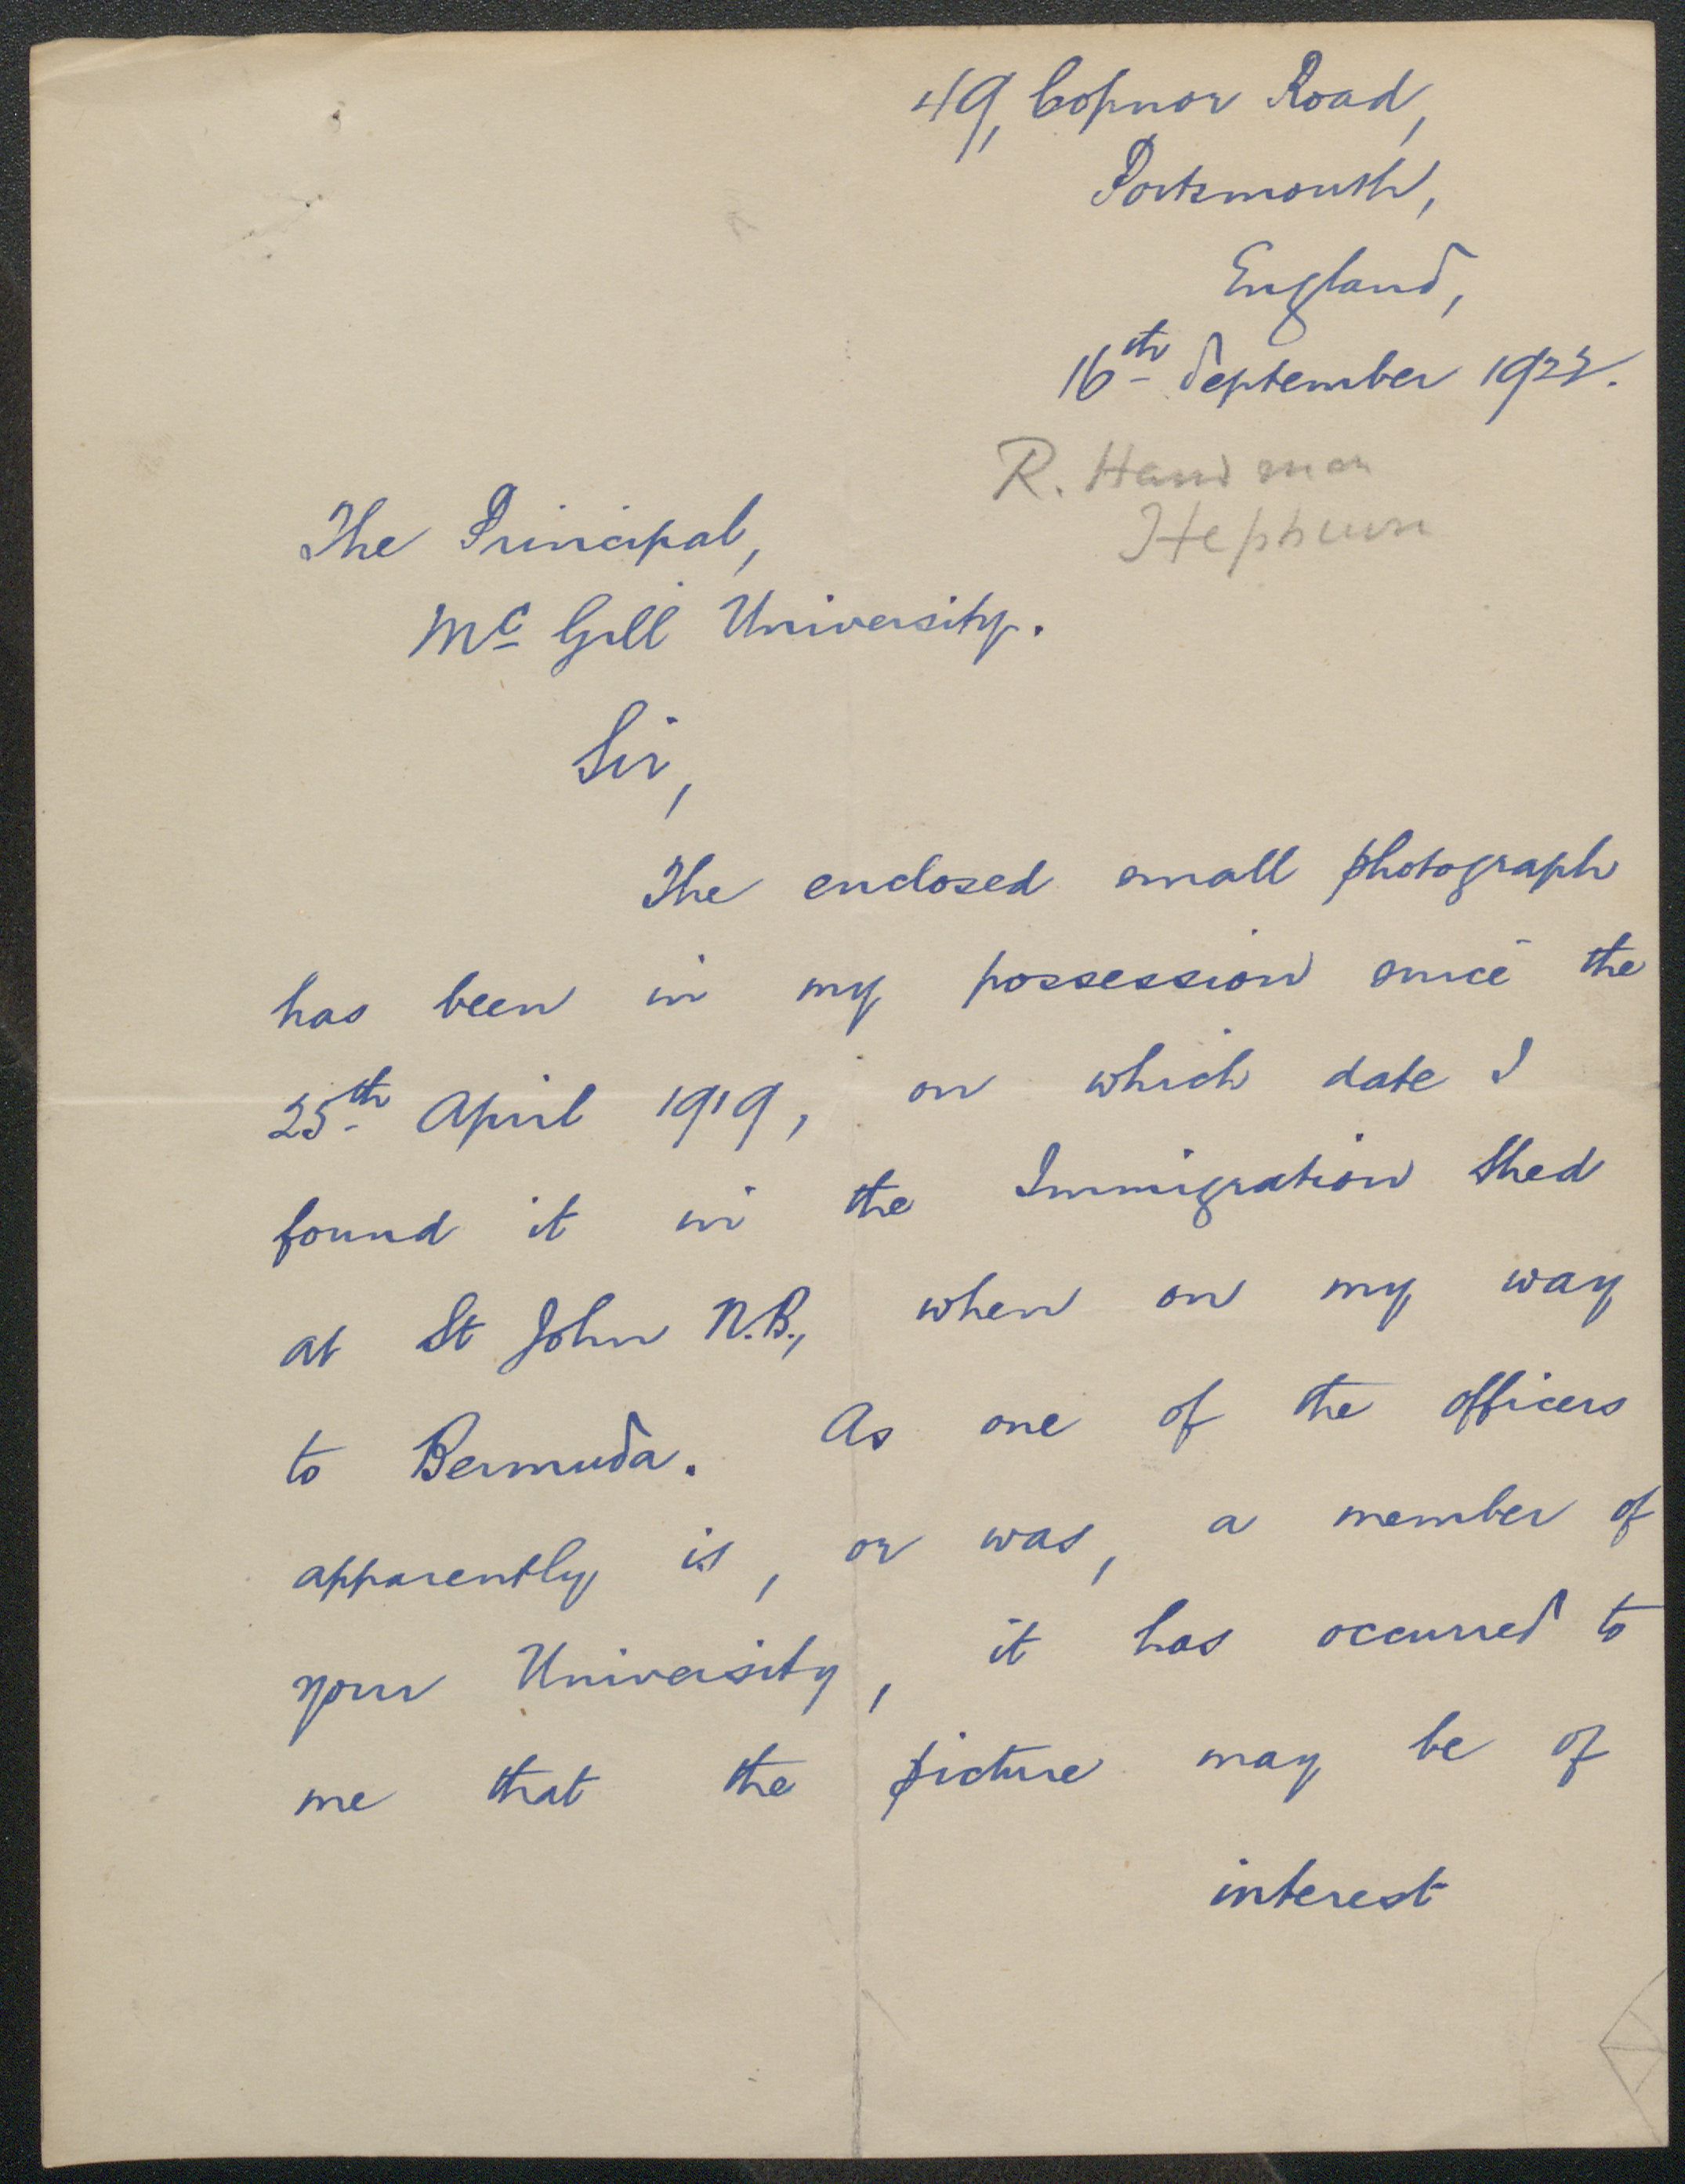 49, Copnor Road,
Portsmouth,
England,
16th September 1922.
R. Hardman
Hepburn
The Principal,
Mc Gill University.
Sir,
The enclosed small photograph
has been in my possession since the
25th April 1919, on which date I
found it in the Immigration Shed
at St John N.B., when on my way
to Bermuda. As one of the officers
apparently is, or was, a member of
your University, it has occurred to
me that the picture may be of
interest